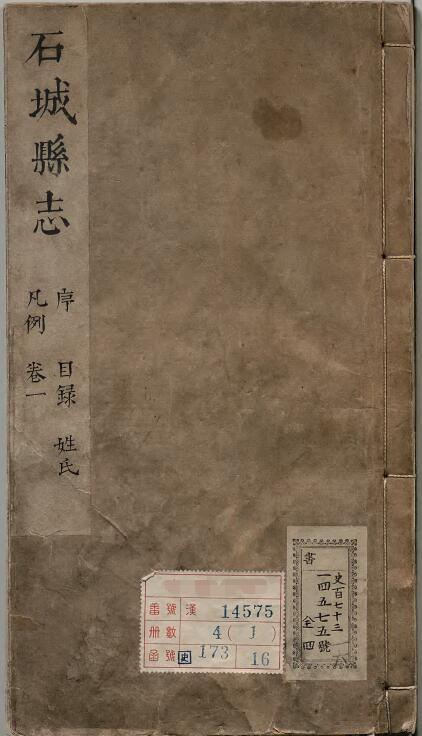 石城縣志
序 目録 姓氏
凡例 卷一
番號 漢 14575
册數 4(1)
函號 史 173 16
書
史百七十三
一四五七五號
全四